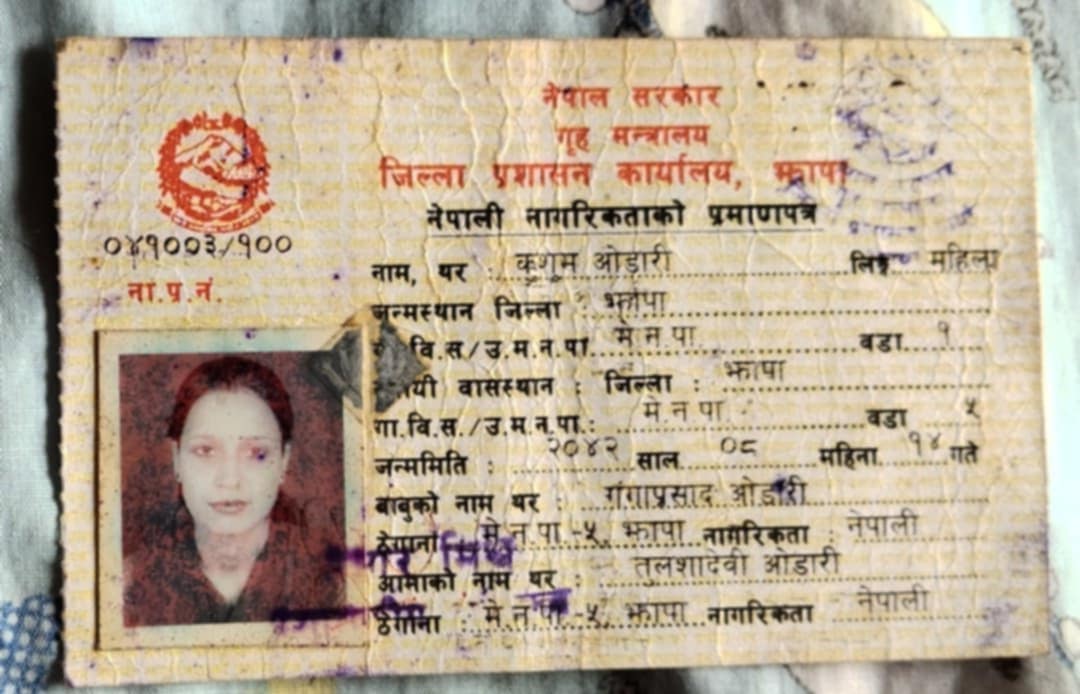 नेपाल सरकार
गृह मन्त्रालय
जिल्ला प्रशासन कार्यालय, झापा
नेपाली नागरिकताको प्रमाणपत्र
०४१००३/१००
ना.प्र.नं.
नाम, थर : कुशुम ओडारी लिङ्ग महिला
जन्मस्थान जिल्ला : झापा
वि.स/उ.म.न.पा. मे.न.पा. वडा १
बासस्थान : जिल्ला : झापा
गा.वि.स./उ.म.न.पा.: मे.न.पा. वडा ५
जन्ममिति : २०४२ साल ०८ महिना १४ गते
बाबुको नाम थर : गंगाप्रसाद ओडारी
ठेगाना मे.न.पा.-५, झापा नागरिकता : नेपाली
आमाको नाम थर : तुलशादेवी ओडारी
ठेगाना : मे.न.पा.-५, झापा नागरिकता नेपाली